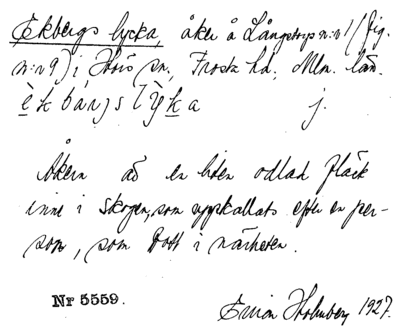 Ekbergs lycka, åker å Långstorps n:r 1 (fig.
n:r 9) i Hörs sn., Frosta hd., Mlm. län.
èkbàrjs lỳka j.
Åkern är en liten odlad fläck
inne i skogen, som uppkallats efter en per-
son, som bott i närheten.
Nr 5559.
Holmberg 1927.